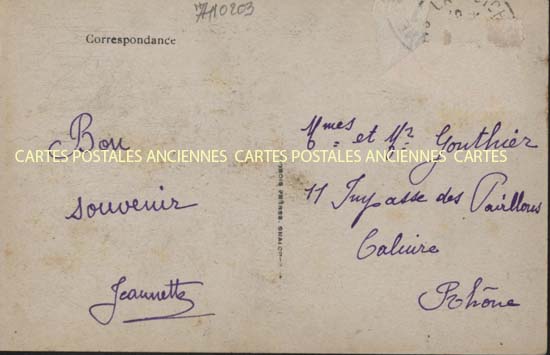 A10203
Correspondance
Bon
souvenir
Jeannette
Mmes et Mr Gouthier
11 Impasse des
Caluire
Rhône
CARTES POSTALES ANCIENNES CARTES POSTALES ANCIENNES CARTES